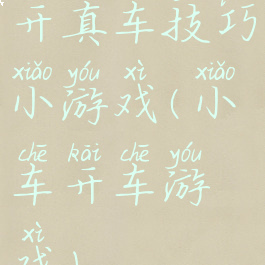 开真车技巧
xiǎo yóu xì xiǎo
小游戏(小
chē kāi chē yóu
车开车游
xì
戏)